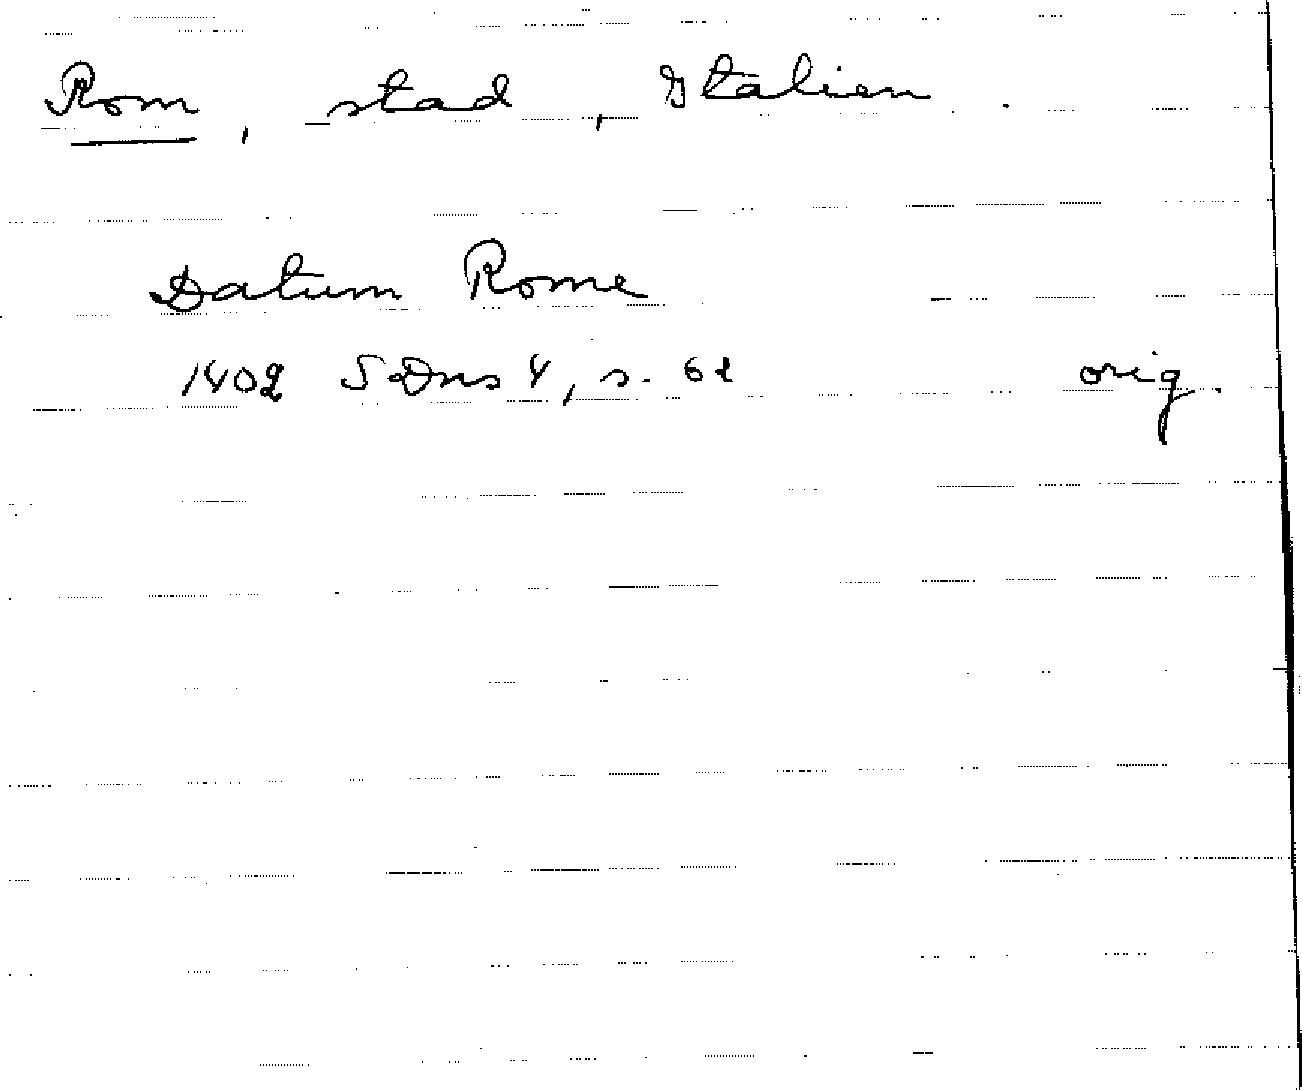 Rom, stad, Italien.
Datum Rome
1402 SDns 4, s. 62 orig.